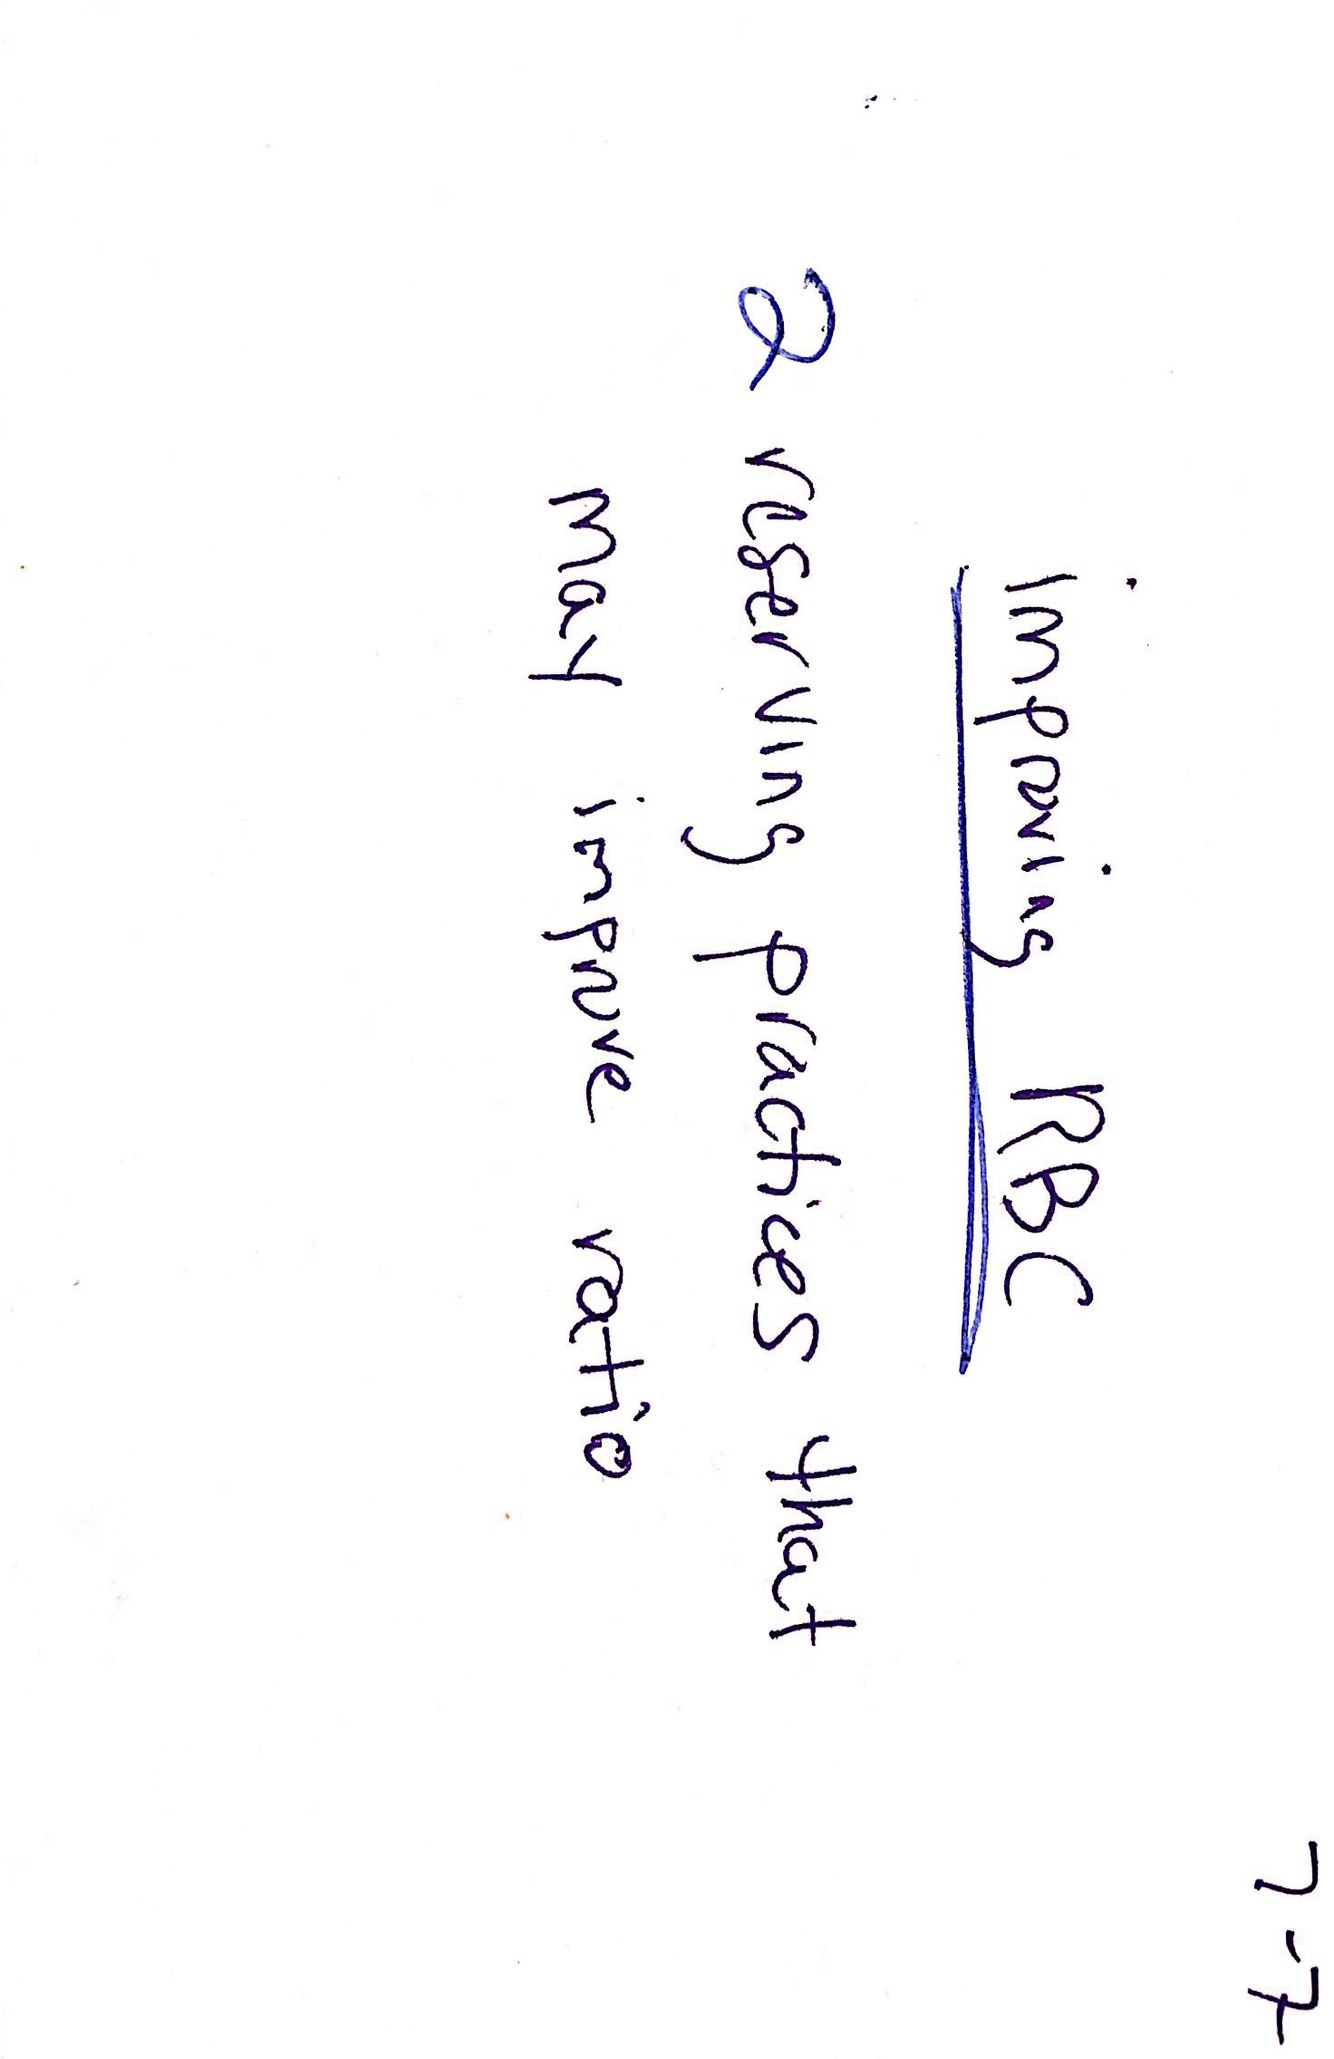 7-7
improving RBC
2 reserving practices that
may improve ratio